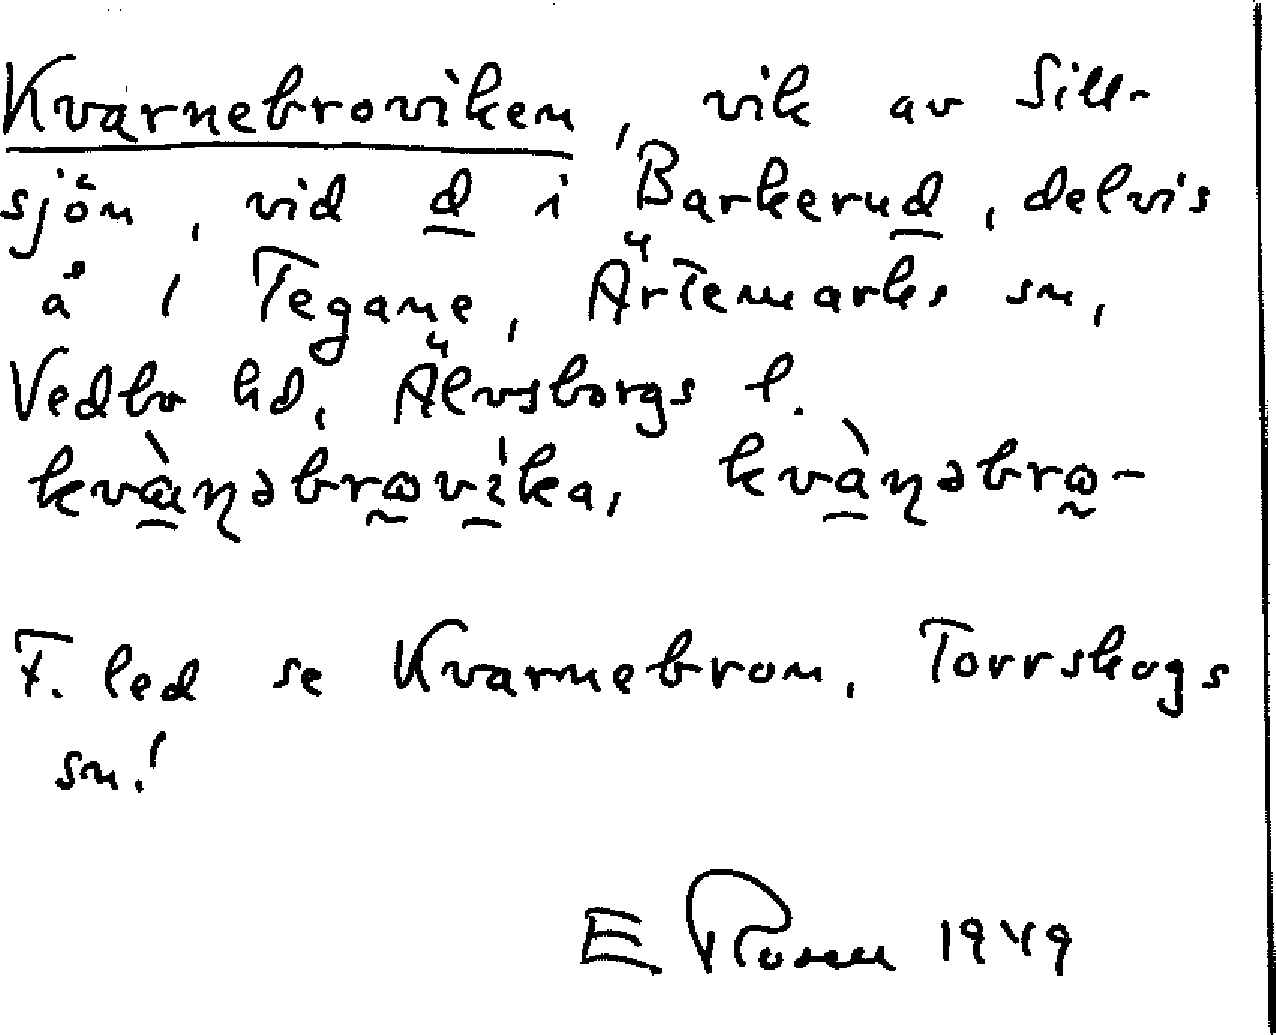 Kvarnebroviken, vik av Sill-
sjön, vid d i Barkerud, delvis
å 1 Tegane, Ärtemarks sn,
Vedbo hd, Älvsborgs l.
kvàɳəbrωvi̇́ka, kvàɳəbrω-
F. led se Kvarnebron, Torrskogs
sn!
E Rosen 1949